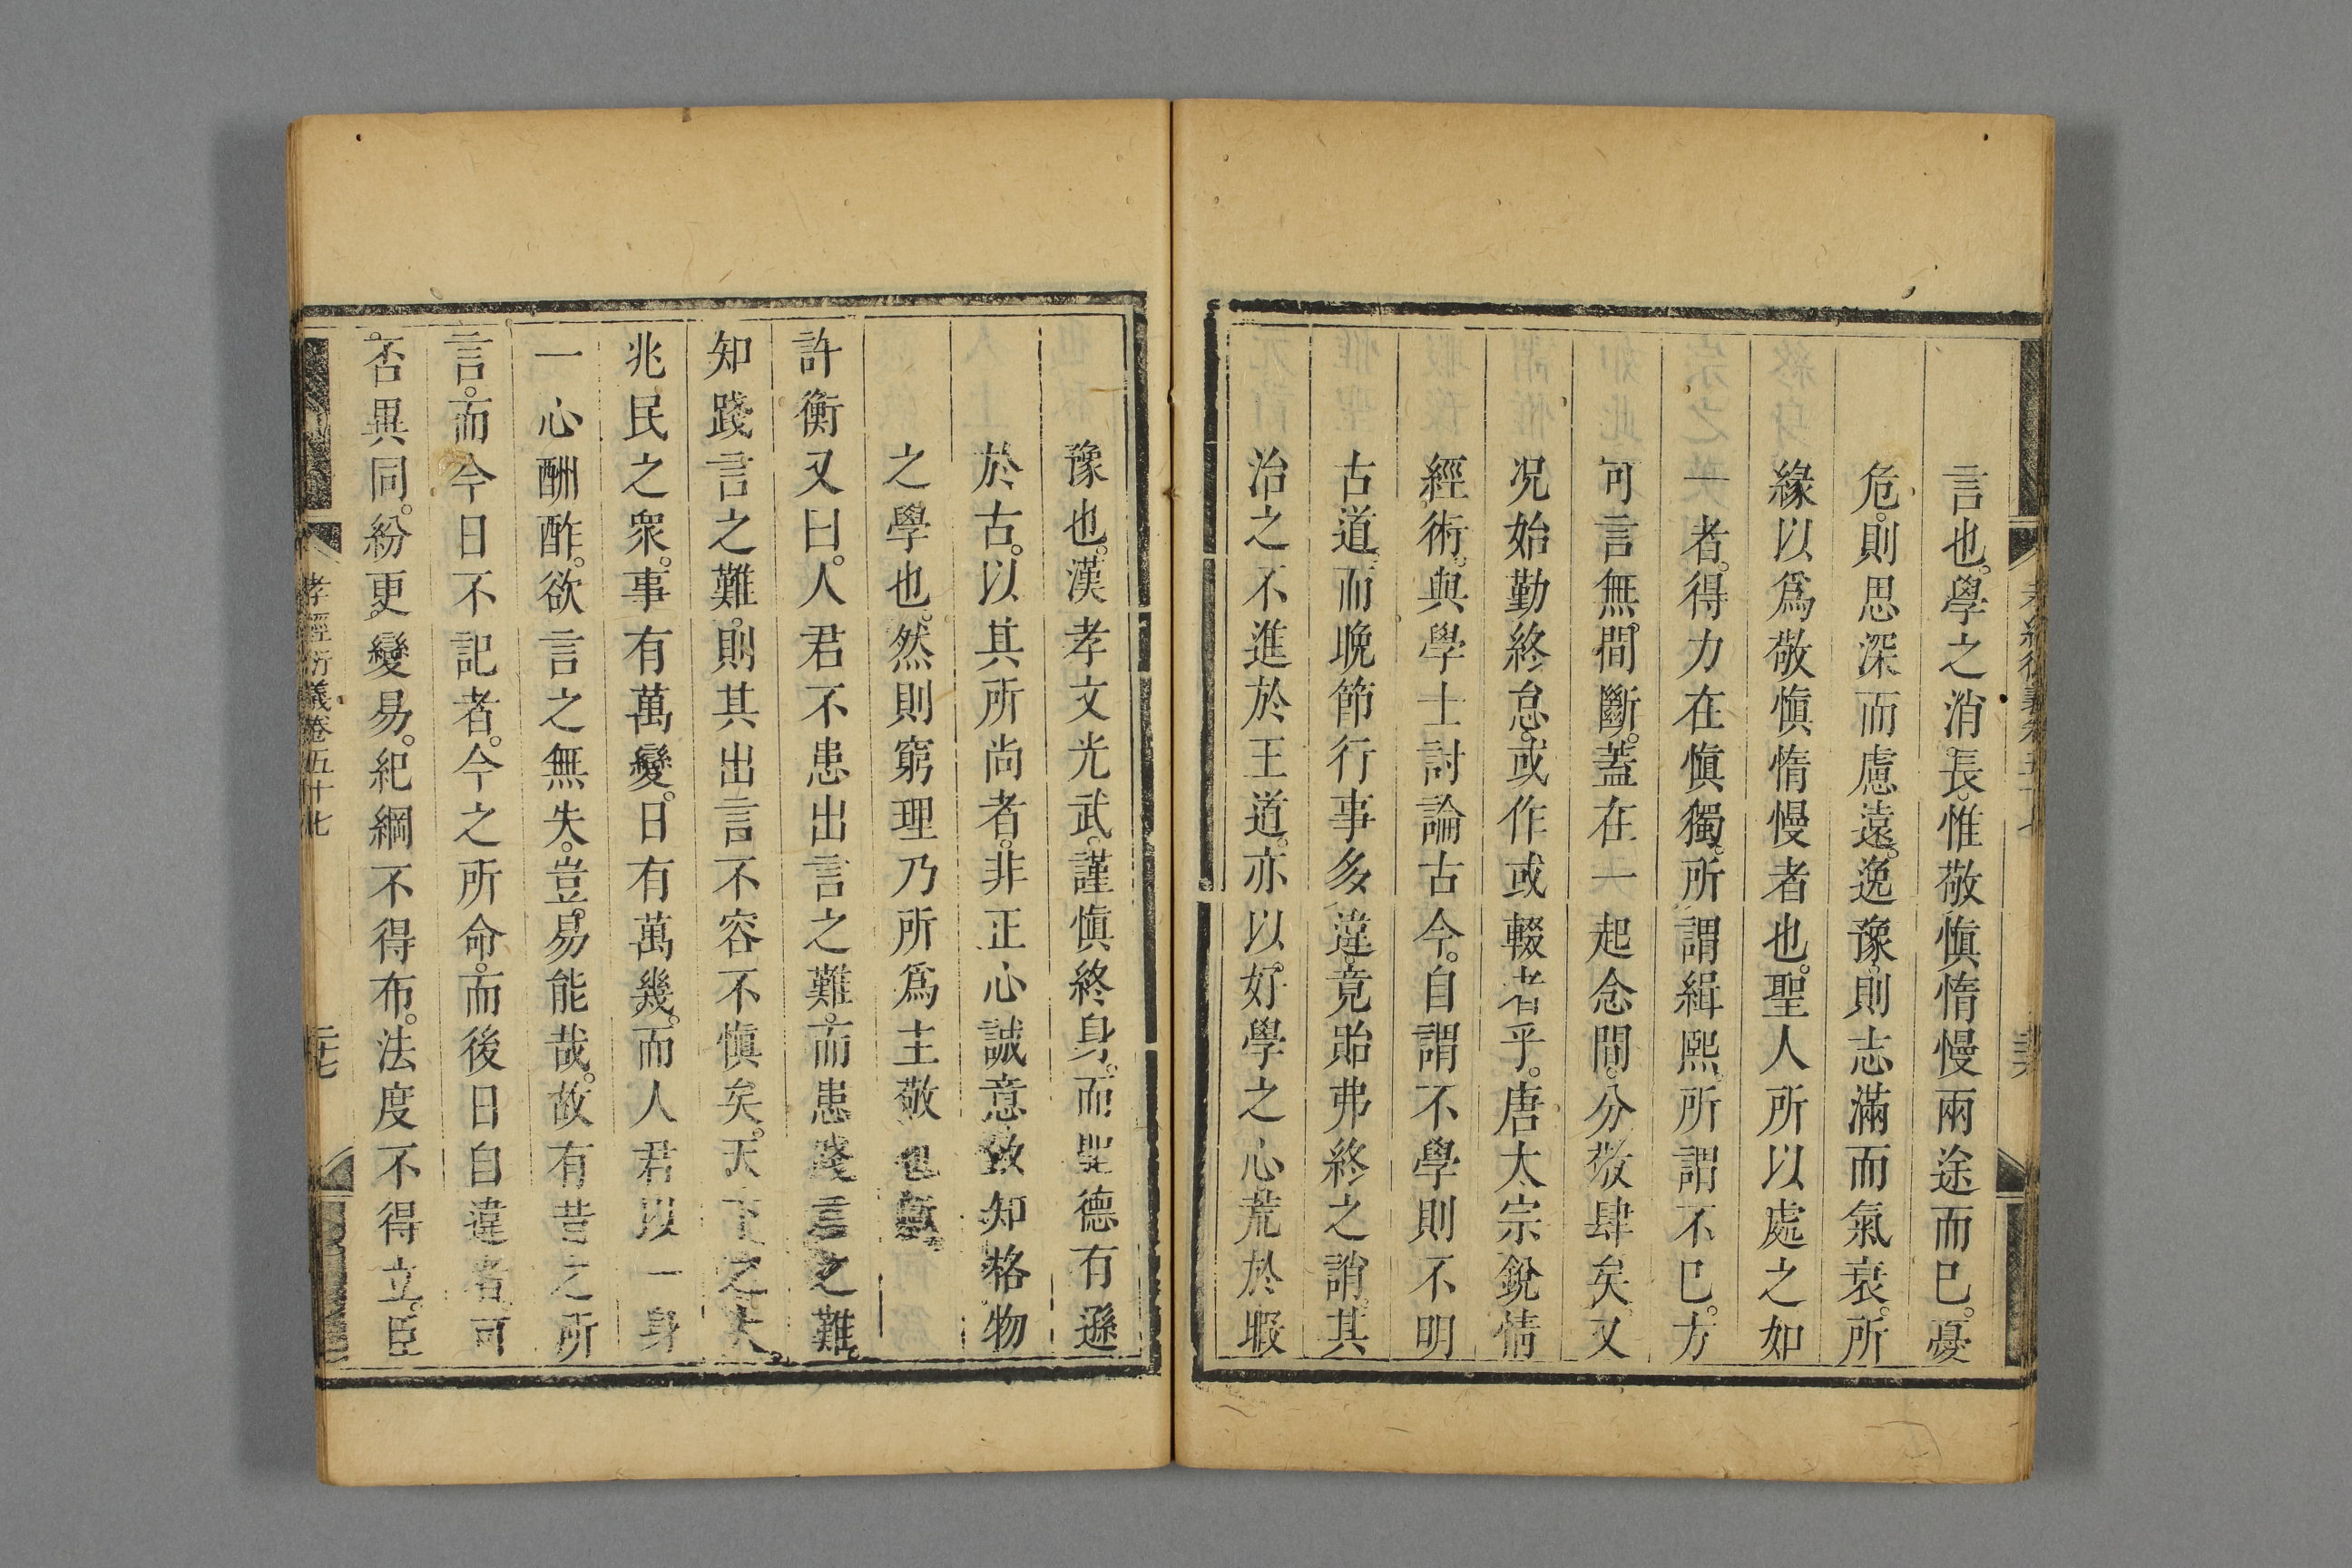 言也。學之消長。惟敬愼惰慢兩途而已。憂
危。則思深而慮遠。逸豫。則志滿而氣衰。所
緣以爲敬愼惰慢者也。聖人所以處之如
一者。得力在愼獨。所謂緝熙。所謂不已。方
可言無間斷。蓋在一起念間。分敬肆矣。又
况始勤終怠。或作或輟者乎。唐太宗銳情
經術。與學士討論古今。自謂不學則不明
古道。而晩節行事多違。竟貽弗終之誚。其
治之不進於王道。亦以好學之心荒於暇
豫也。漢孝文光武。謹愼終身。而聖德有遜
於古。以其所尚者。非正心誠意致知格物
之學也。然則窮理乃所爲主敬也歟
許衡又曰。人君不患出言之難。而患踐言之難。
知踐言之難。則其出言不容不愼矣。天下之大。
兆民之衆。事有萬變。日有萬幾。而人君以一身
一心酬酢。欲言之無失。豈易能哉。故有昔之所
言。而今日不記者。今之所命。而後日自違者。可
否異同。紛更變易。紀綱不得布。法度不得立。臣
孝經衍義卷五十七
三七